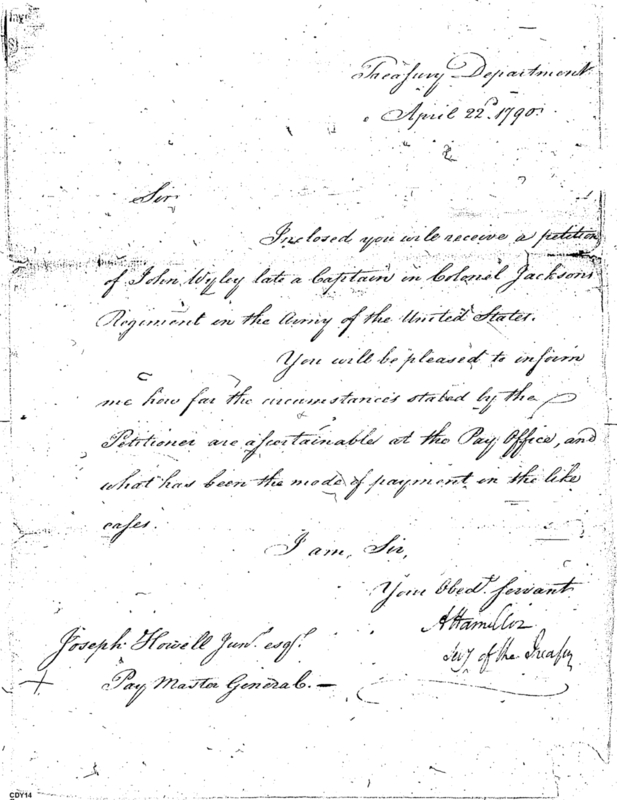 Treasury Department
April 22d. 1790.
Sir
Inclosed you will receive a petition
of John Wyley late a Captain in Colonel Jacksons
Regiment in the Army of the United States.
You will be pleased to inform
me how far the circumstances stated by the
Petitioner are ascertainable at the Pay Office, and
what has been the mode of payment in the like
cases.
I am, Sir,
Your Obedt. servant
AHamilton
Secy of the Treasury
Joseph Howell Junr. esqr.
Pay Master General. —
CDY14